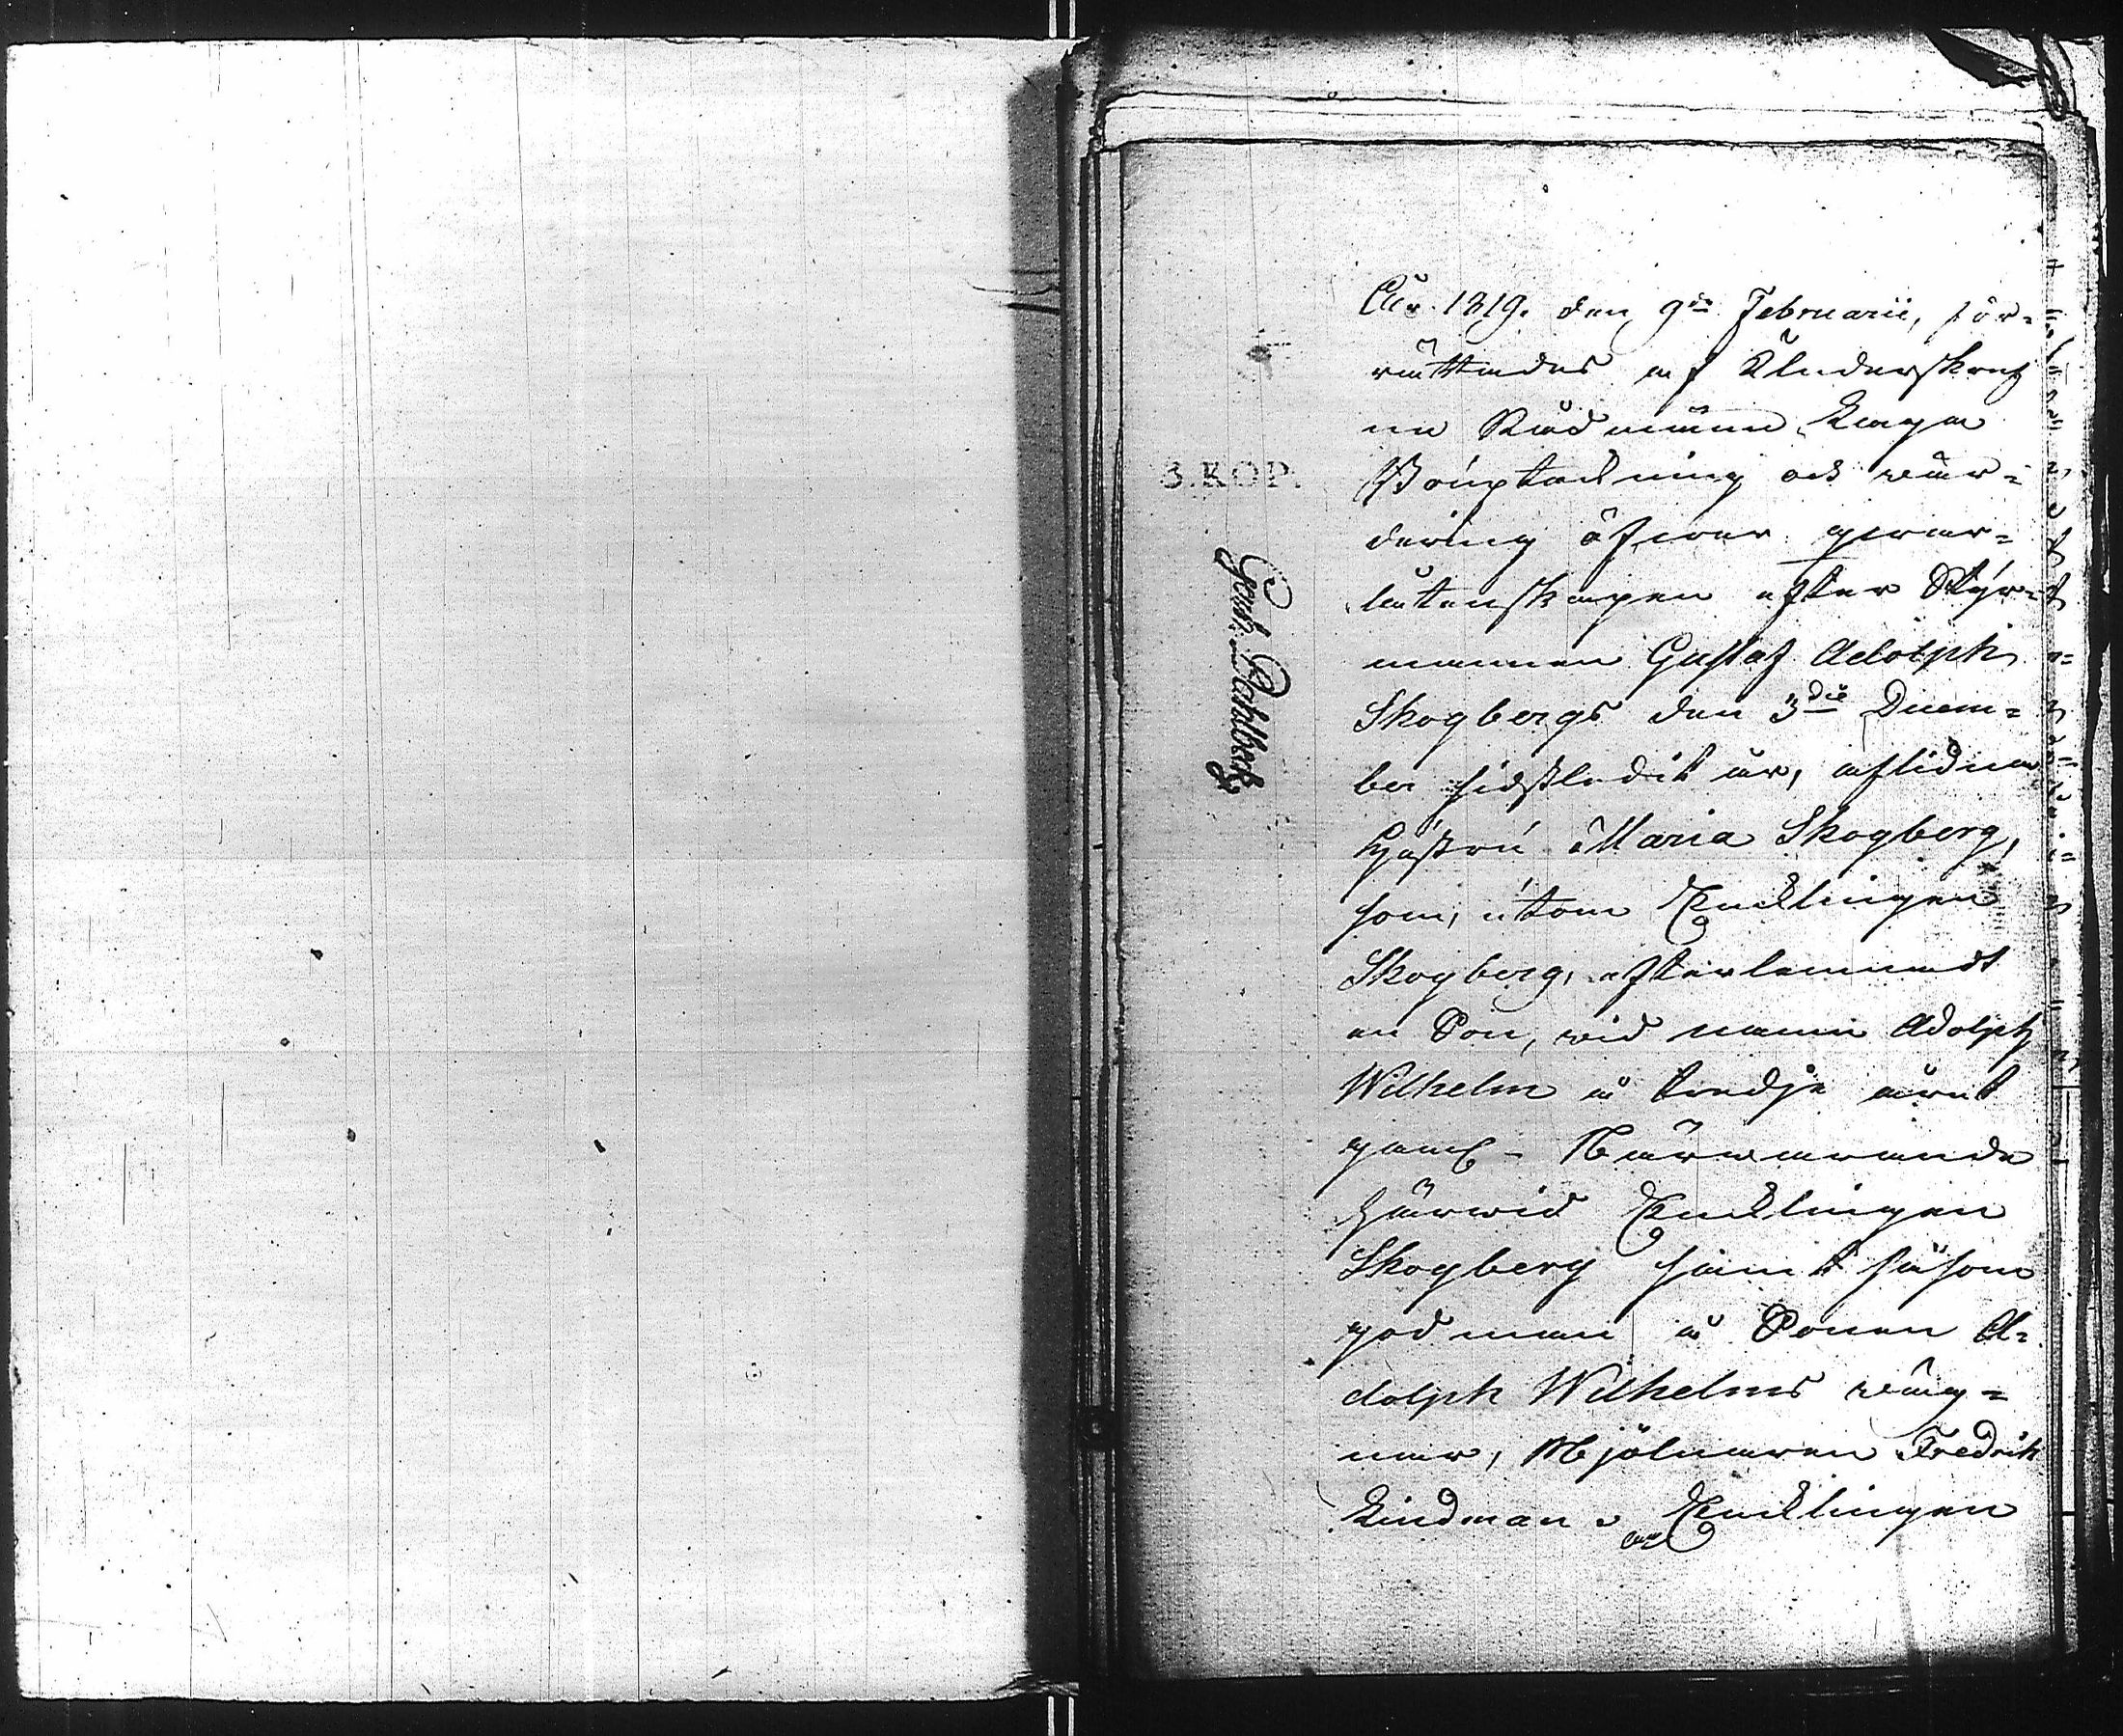 3. KOP.
År 1819. den 9de Februarii, för=
rättades af Underskref
ne Rådmän Laga
Bouptekning ock wär=
dering öfwer qwar=
låtenskapen efter Styr=
mannen Gustaf Adolph
Skogbergs den 3die Decem=
ber sidstledit år, aflidna
Hustru Maria Skogberg,
som, utom Encklingen
Skogberg, efterlemnadt
en Son, wid namn Adolph
Wilhelm å tredje året
gaml - Närwarande
härwid Encklingen
Skogberg samt såsom
godman å Sonen A=
dolph Wilhelms wäg=
nar, Mjölnaren Fredrik
Lindman. Encklingen